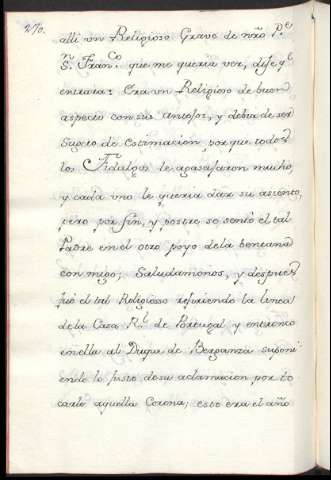 270.
alli vn Religioso Grave de nr̃o P.e
S.n Fran.co que me queria ver, dixe q.e
entrara: Era vn Religioso de buen
aspecto con sus antojos, y debia de ser
Sugeto de estimacion, por que todos
los Fidalgos le agasajaron mucho,
y cada vno le queria dar su asiento,
pero por fin, y postre se sentó el tal
Padre en el otro poyo dela bentana
con migo; Saludamonos, y despues
fué el tal Religioso refiriendo la linea
de la Casa R.l de Portugal, y entronco
en ella al Duque de Berganza suponi
endo lo justo de su aclamacion por to
carle aquella Corona; esto era el año